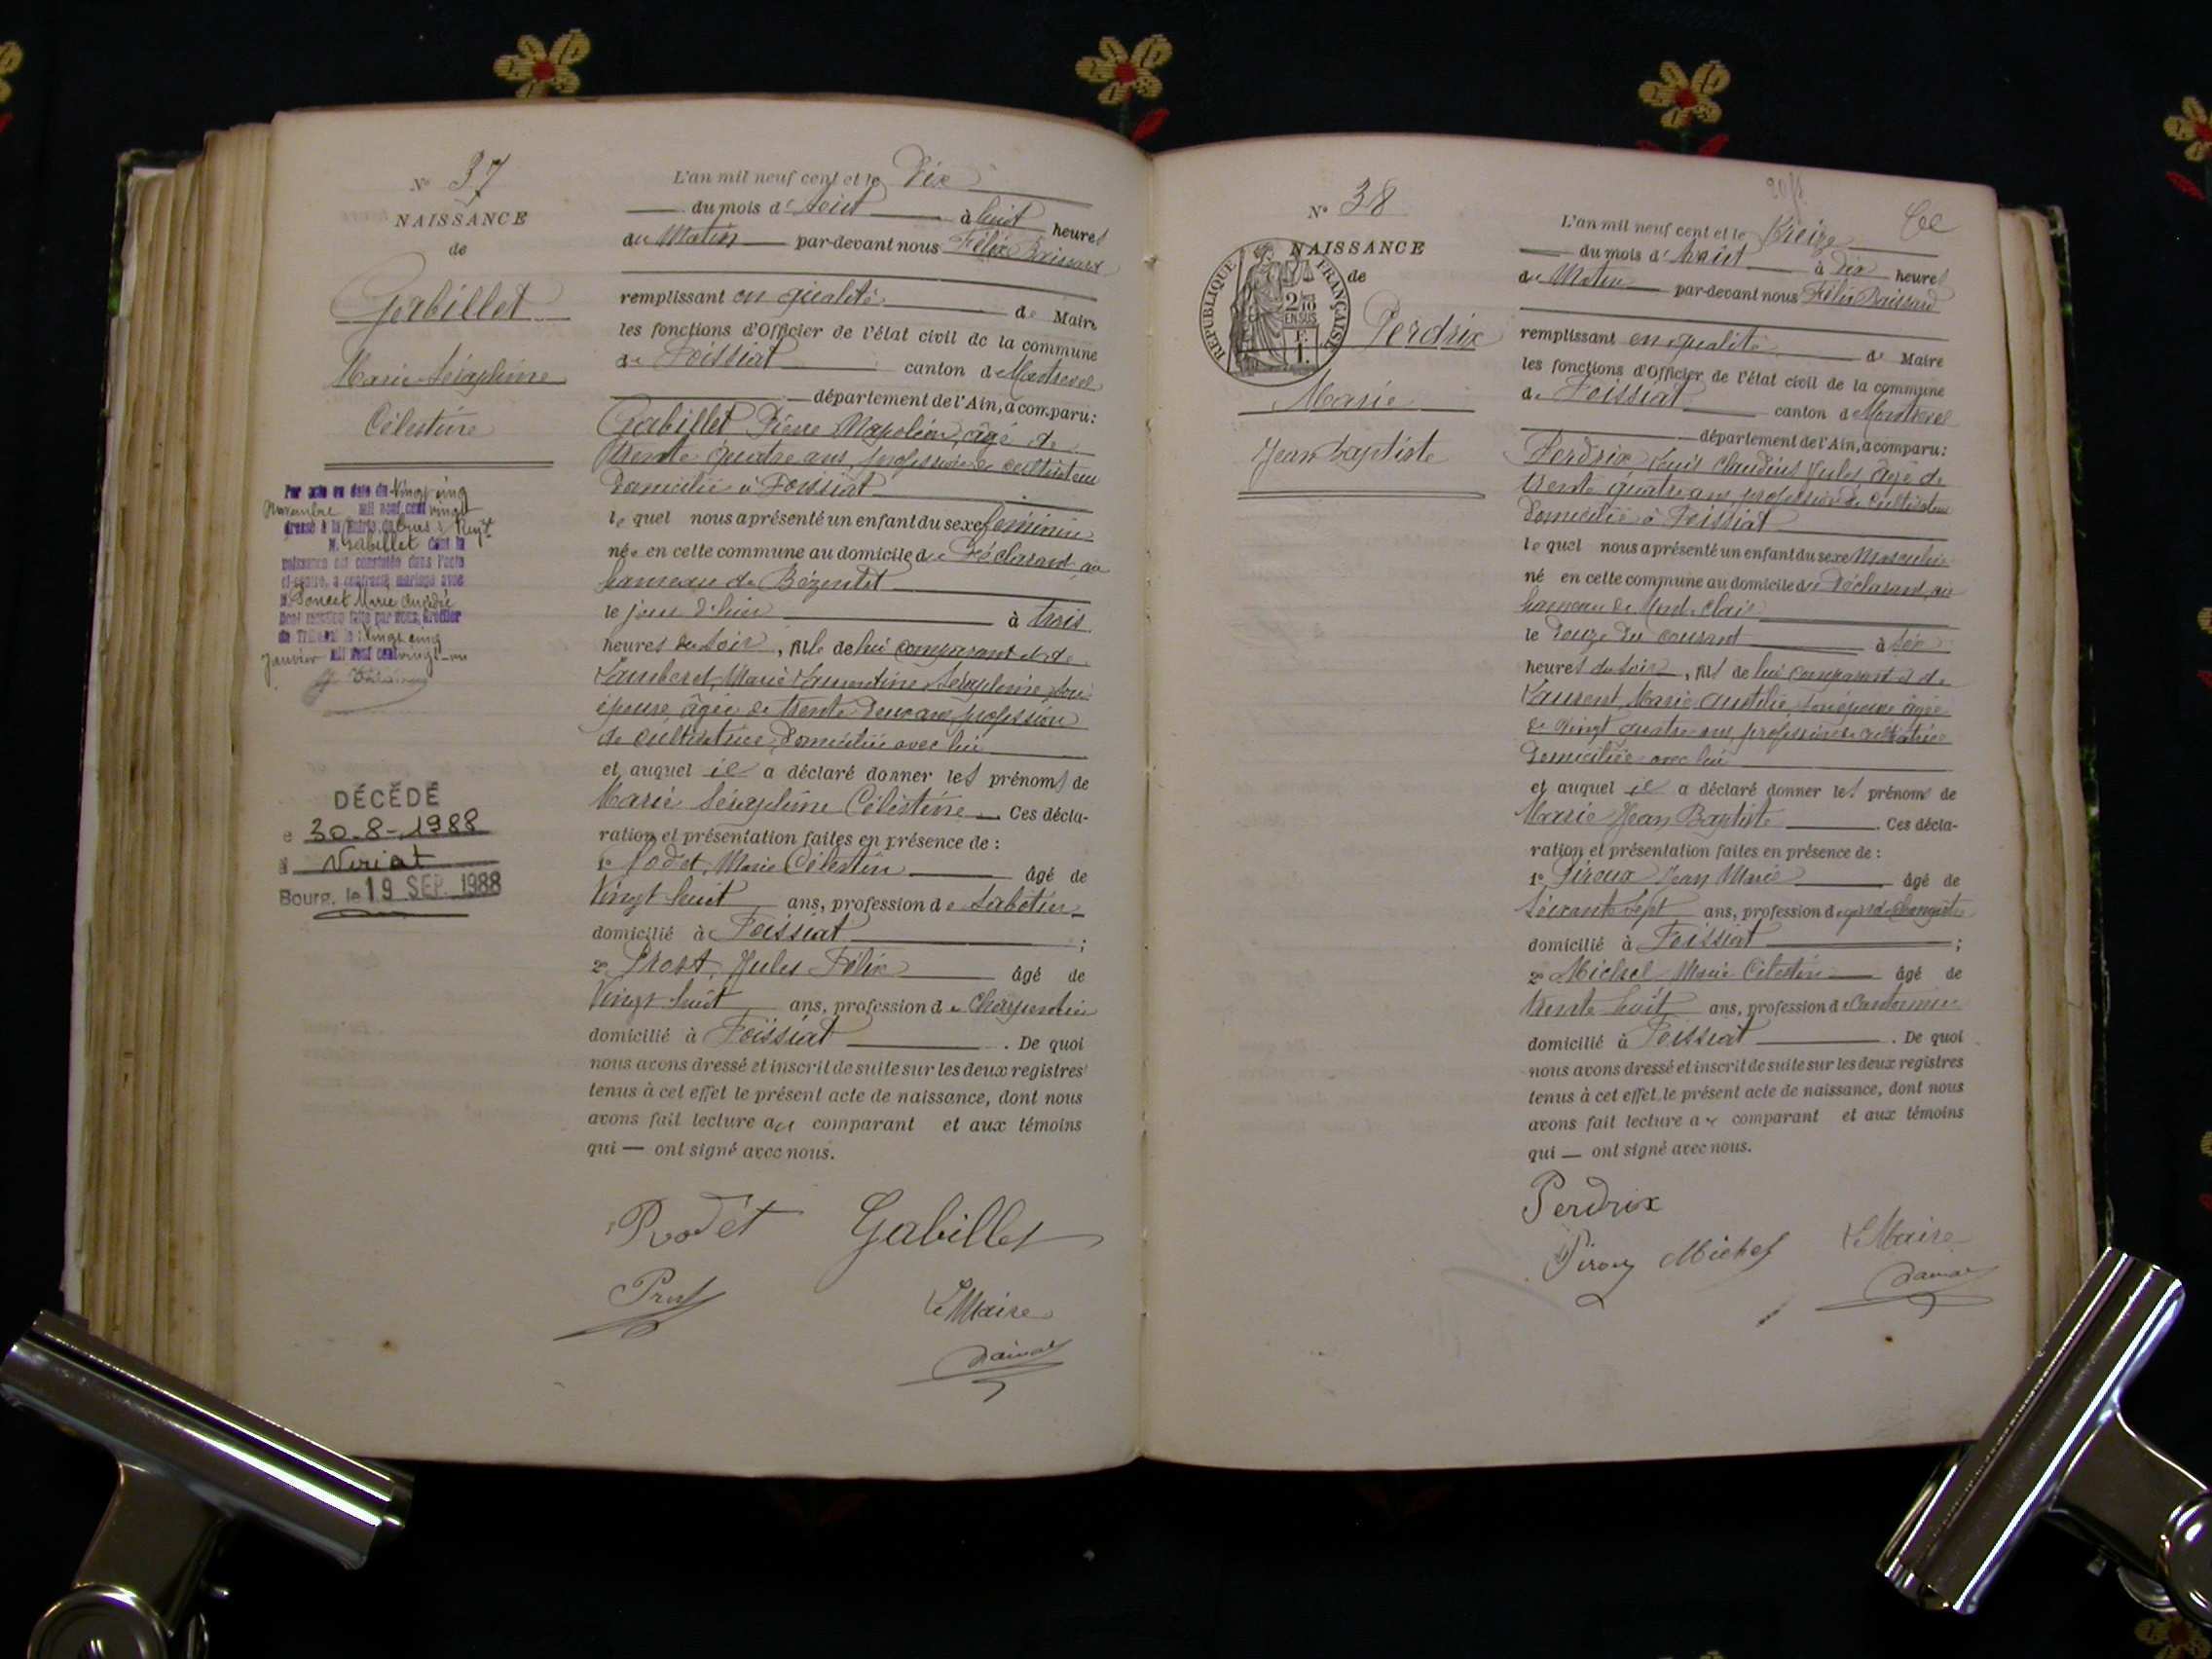 N° 37
NAISSANCE
de
Gabillet
Marie Séraphine
Célestine
Par acte en date du vingt cinq
Novembre mil neuf cent vingt
dressé à la Mairie de
M. Gabillet dont la
naissance est constatée dans l'acte
ci-contre, a contracté mariage avec
M. Poncet Marie
Dont mention faite par nous, Greffier
du Tribunal le vingt cinq
Janvier mil neuf cent vingt-un
DÉCÉDÉ
e 30-8-1988
à Viriat
Bourg, le 19 SEP. 1988
L'an mil neuf cent et le Dix
du mois d'Aout à huit heures
du Matin par-devant nous Félix
remplissant en qualité de Maire
les fonctions d'Officier de l'état civil de la commune
de Foissiat canton de Montrevel
département de l'Ain, a comparu:
Gabillet Pierre Napoléon, âgé de
trente quatre ans, profession de cultivateur
domicilié à Foissiat
lequel nous a présenté un enfant du sexe féminin
née en cette commune au domicile du Déclarant, au
hameau de Bézentet
le jour d'hier à trois
heures du soir, fille de lui comparant et de
Lamberet, Marie Laurentine Séraphine, son
épouse, âgée de trente deux ans, profession
de cultivatrice, domiciliée avec lui
et auquel il a déclaré donner les prénoms de
Marie Séraphine Célestine. Ces décla-
ration et présentation faites en présence de :
1° Rodet, Marie Célestin âgé de
Vingt huit ans, profession de Sabotier
domicilié à Foissiat ;
2° Prost, Jules Félix âgé de
Vingt huit ans, profession de Charpentier
domicilié à Foissiat . De quoi
nous avons dressé et inscrit de suite sur les deux registres
tenus à cet effet le présent acte de naissance, dont nous
avons fait lecture au comparant et aux témoins
qui — ont signé avec nous.
Rodet Gabillet
Prost Le Maire
N° 38
NAISSANCE
de
RÉPUBLIQUE FRANÇAISE
2/10
EN SUS
F.
1.
Perdrix
Marie
Jean Baptiste
L'an mil neuf cent et le treize
du mois d'Août à dix heures
du Matin par-devant nous Félix
remplissant en qualité de Maire
les fonctions d'Officier de l'état civil de la commune
de Foissiat canton de Montrevel
département de l'Ain, a comparu:
Perdrix Louis Claudius Jules, âgé de
trente quatre ans, profession de Cultivateur
domicilié à Foissiat
lequel nous a présenté un enfant du sexe Masculin
né en cette commune au domicile du Déclarant, au
hameau de
le douze du courant à six
heures du soir, fils de lui comparant et de
Laurent, Marie, son épouse âgée
de vingt quatre ans, profession de cultivatrice
domiciliée avec lui
et auquel il a déclaré donner les prénoms de
Marie Jean Baptiste . Ces décla-
ration et présentation faites en présence de :
1° Piroux Jean Marie âgé de
Soixante sept ans, profession de garde champêtre
domicilié à Foissiat ;
2° Michel Marie Célestin âgé de
trente huit ans, profession de Cantonnier
domicilié à Foissiat . De quoi
nous avons dressé et inscrit de suite sur les deux registres
tenus à cet effet le présent acte de naissance, dont nous
avons fait lecture au comparant et aux témoins
qui — ont signé avec nous.
Perdrix
Piroux Michel Le Maire